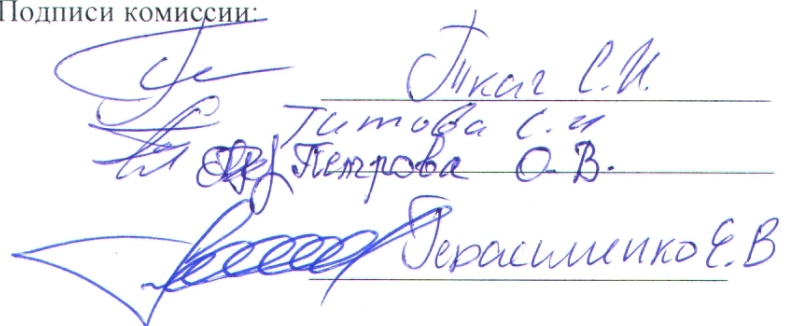 Подписи комиссии:
Ткач С.И.
Титова С.И
Петрова О.В.
Герасименко Е.В